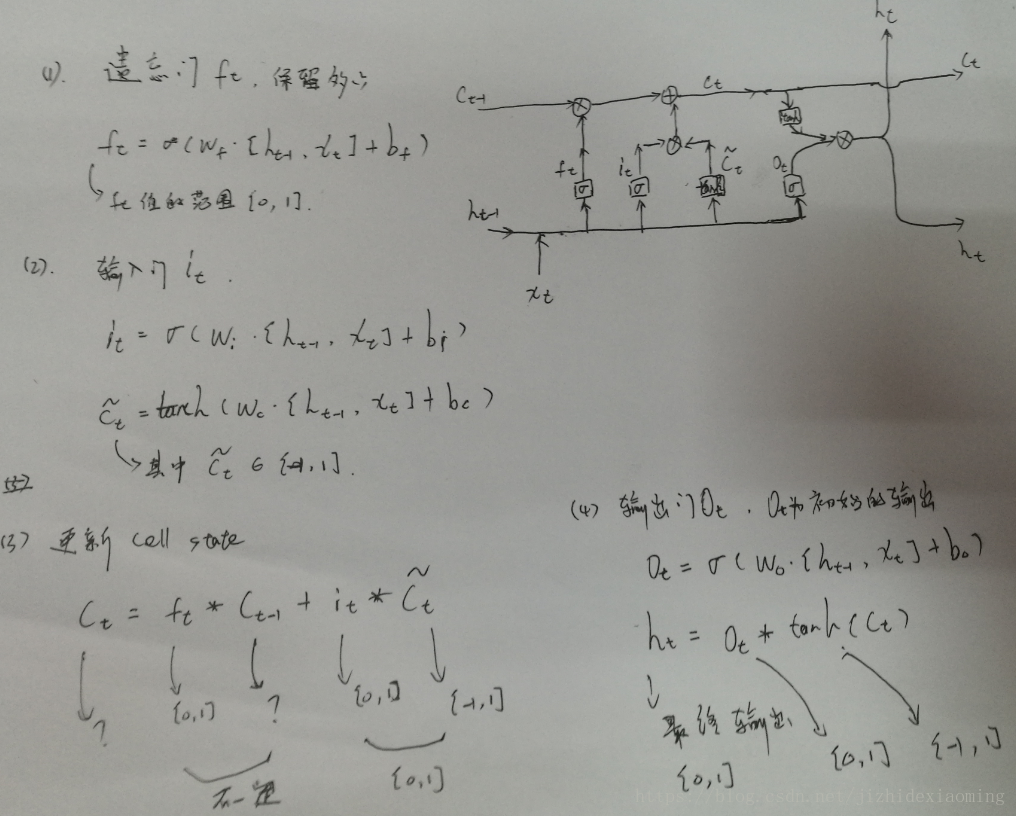 (1). 遗忘门 ft. 保留的
ft = σ(Wf·[ht-1, xt] + bf)
ft 值的范围 [0,1].
(2). 输入门 it.
it = σ(Wi·[ht-1, xt] + bi)
C̃t = tanh(Wc·[ht-1, xt] + bc)
其中 C̃t ∈ [-1,1].
(3) 更新 cell state
Ct = ft * Ct-1 + it * C̃t
? [0,1] ? [0,1] [-1,1]
不一定 [0,1]
ht
Ct-1 × + Ct Ct
tanh
ft it × C̃t Ot ×
σ σ tanh σ
ht-1
xt ht
(4) 输出门Ot. Ot为初始的输出
Ot = σ(Wo·[ht-1, xt] + bo)
ht = Ot * tanh(Ct)
最终输出
[0,1] [0,1] [-1,1]
https://blog.csdn.net/jizhidexiaoming